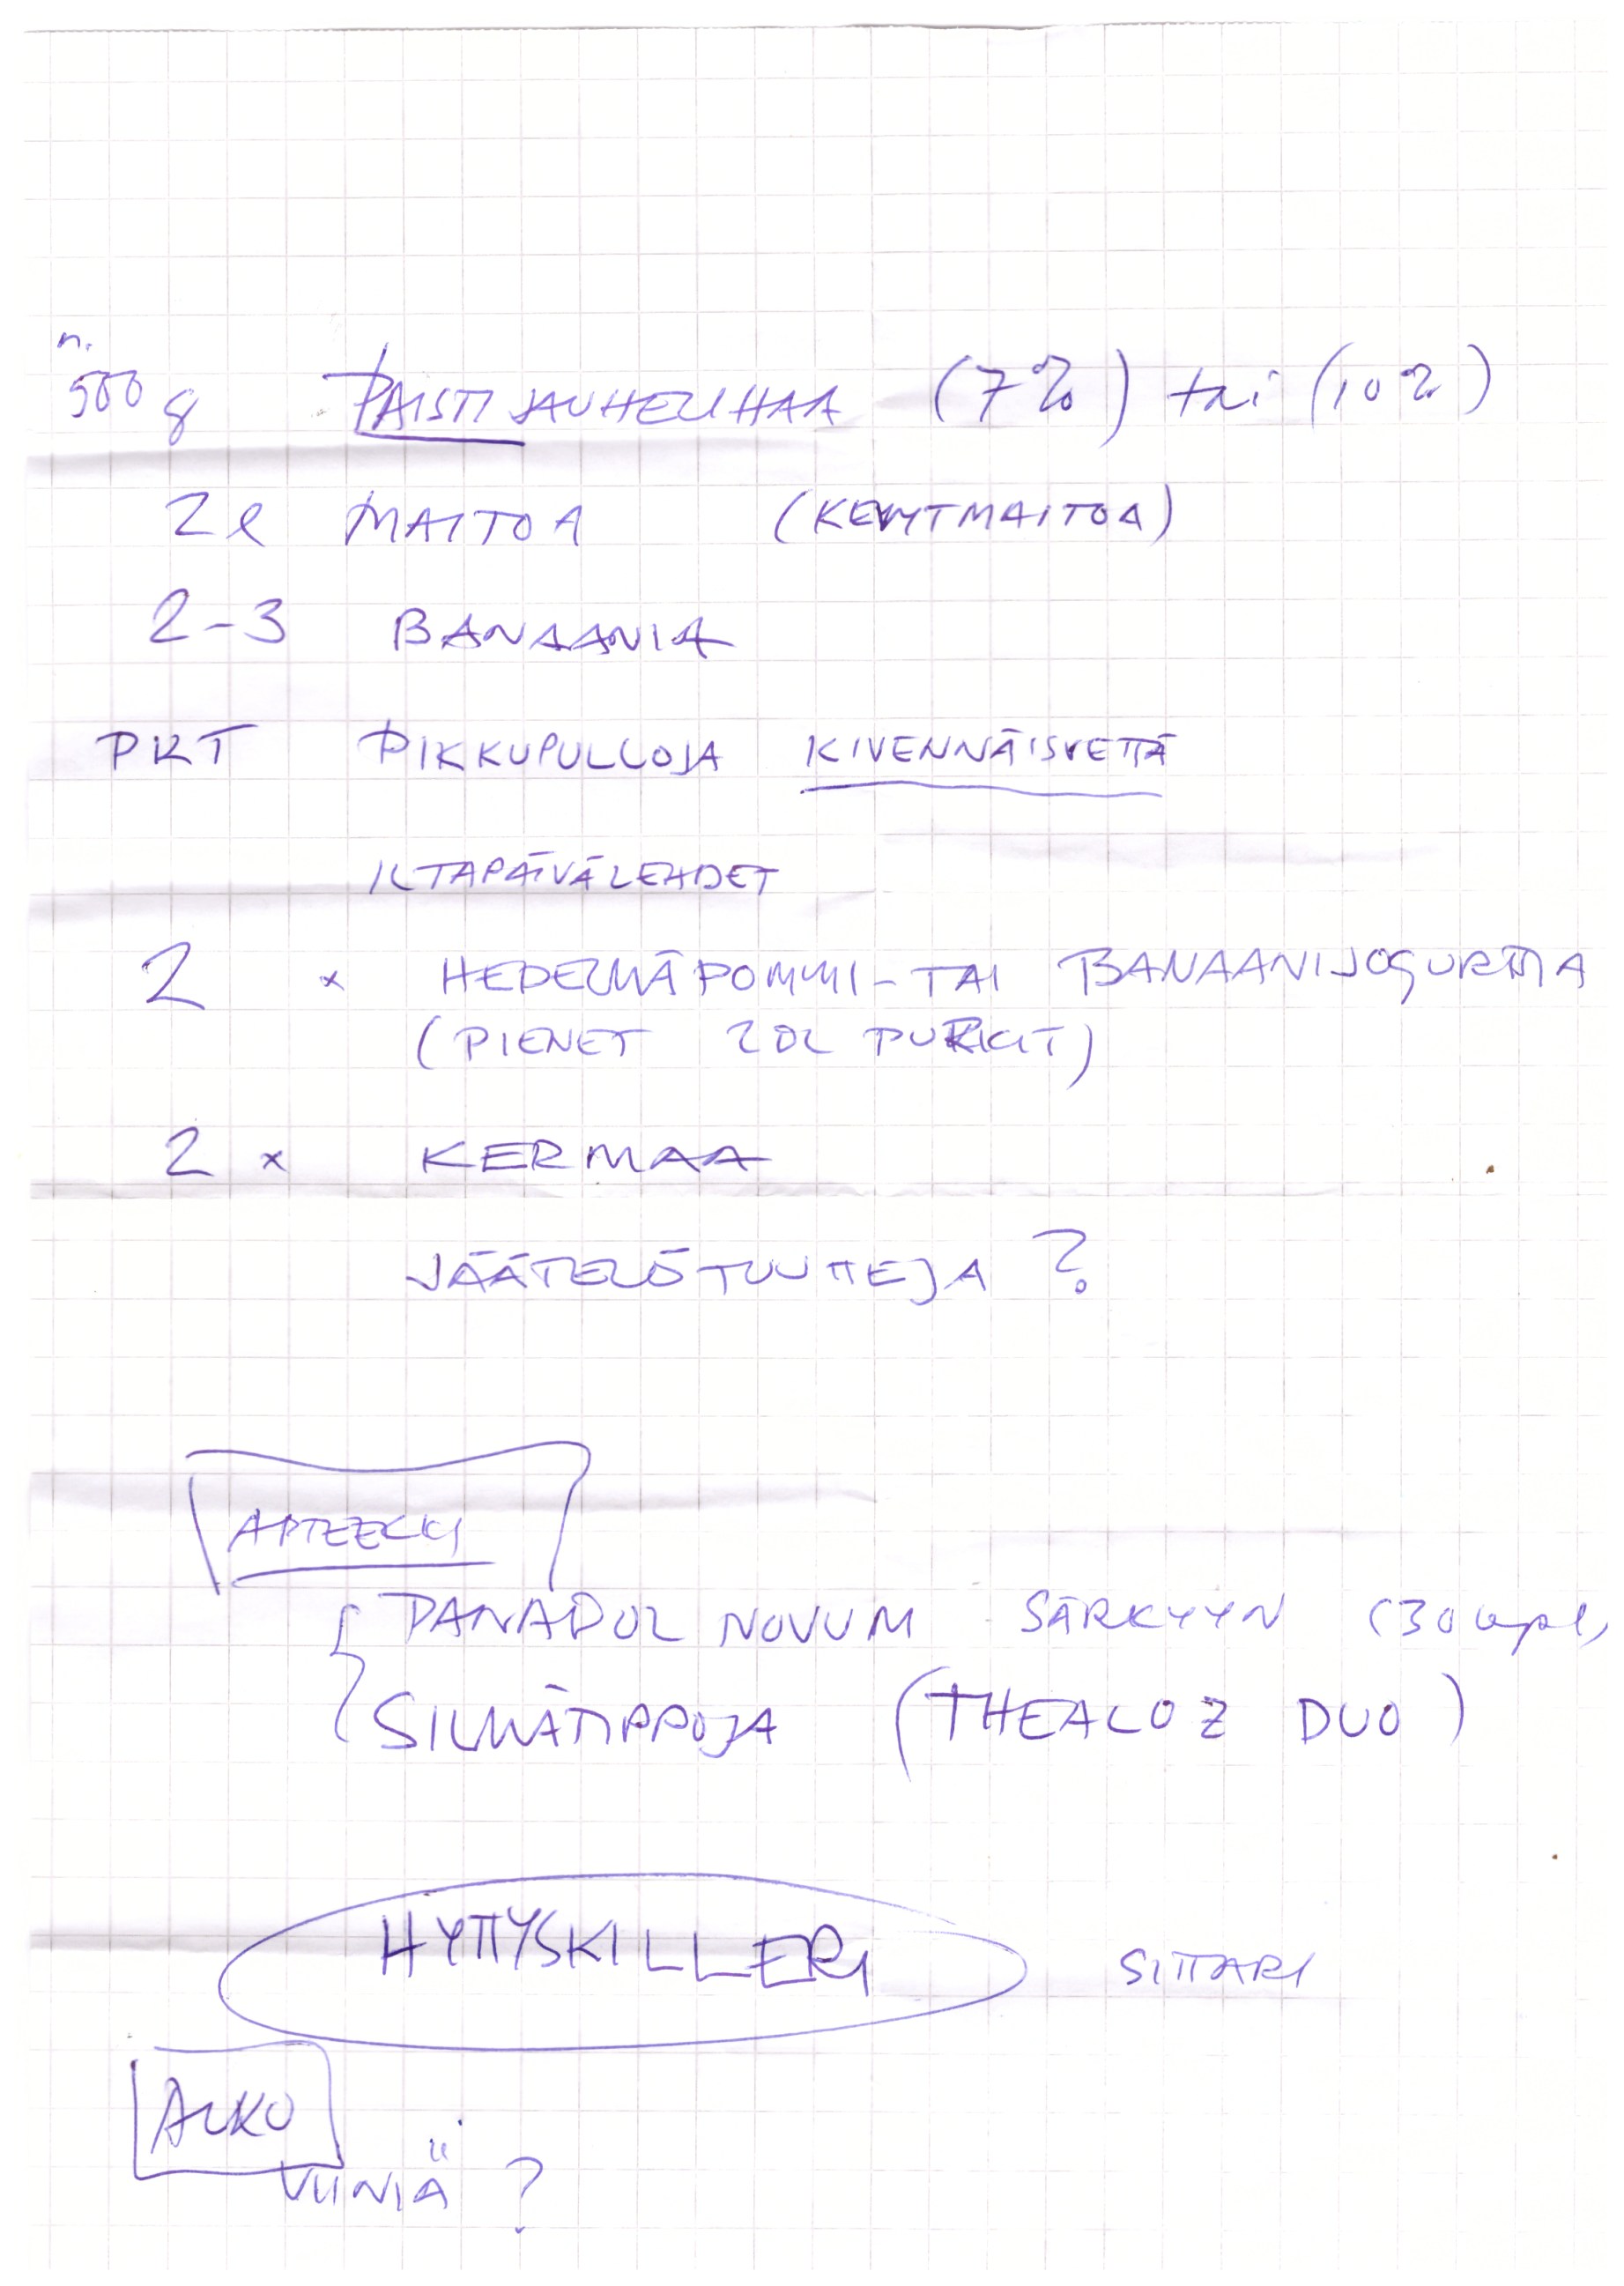 n.
500 g PAISTIJAUHELIHAA (7%) tai (10%)
2l MAITOA (KEVYTMAITOA)
2-3 BANAANIA
PKT PIKKUPULLOJA KIVENNÄISVETTÄ
ILTAPÄIVÄLEHDET
2 x HEDELMÄPOMMI- TAI BANAANIJOGURTTIA
(PIENET 2DL PURKIT)
2 x KERMAA
JÄÄTELÖTUUTTEJA ?
APTEEKKI
PANADOL NOVUM SÄRKYYN (30 kpl)
SILMÄTIPPOJA (THEALOZ DUO)
HYTTYSKILLERI SITTARI
ALKO
VIINIÄ ?